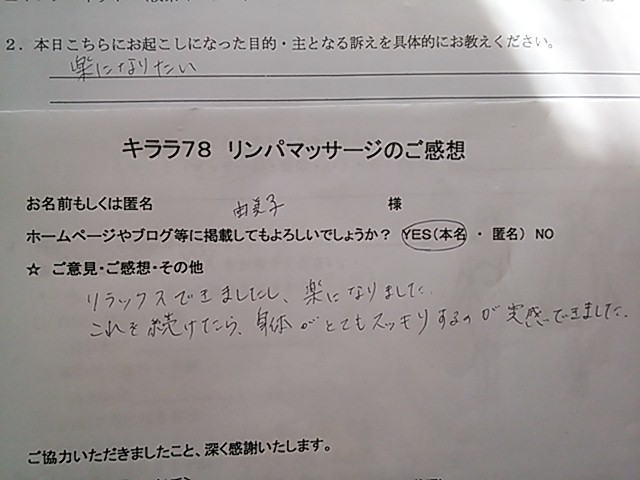 2．本日こちらにお起こしになった目的・主となる訴えを具体的にお教えください。
楽になりたい
キララ78 リンパマッサージのご感想
お名前もしくは匿名 由美子 様
ホームページやブログ等に掲載してもよろしいでしょうか？ YES（本名 ・ 匿名） NO
☆ ご意見・ご感想・その他
リラックスできましたし、楽になりました。
これを続けたら、身体がとてもスッキリするのが実感できました。
ご協力いただきましたこと、深く感謝いたします。